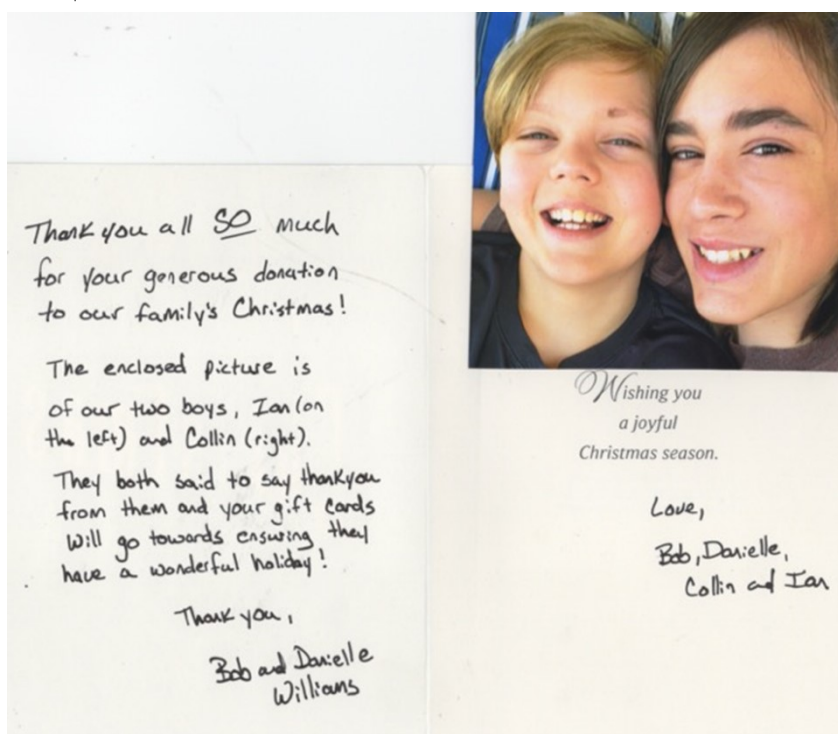 Thank you all SO much
for your generous donation
to our family's Christmas!
The enclosed picture is
of our two boys, Ian (on
the left) and Collin (right).
They both said to say thankyou
from them and your gift cards
will go towards ensuring they
have a wonderful holiday!
Thank you,
Bob and Danielle
Williams
Wishing you
a joyful
Christmas season.
Love,
Bob, Danielle,
Collin and Ian